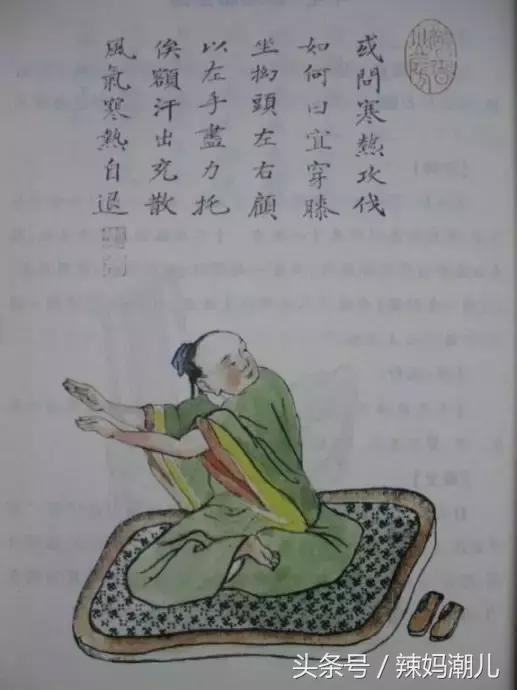 或問寒熱攻伐
如何曰宜穿膝
坐拗頭左右顧
以左手盡力托
俟額汗出充散
風氣寒熱自退
头条号 / 辣妈潮儿